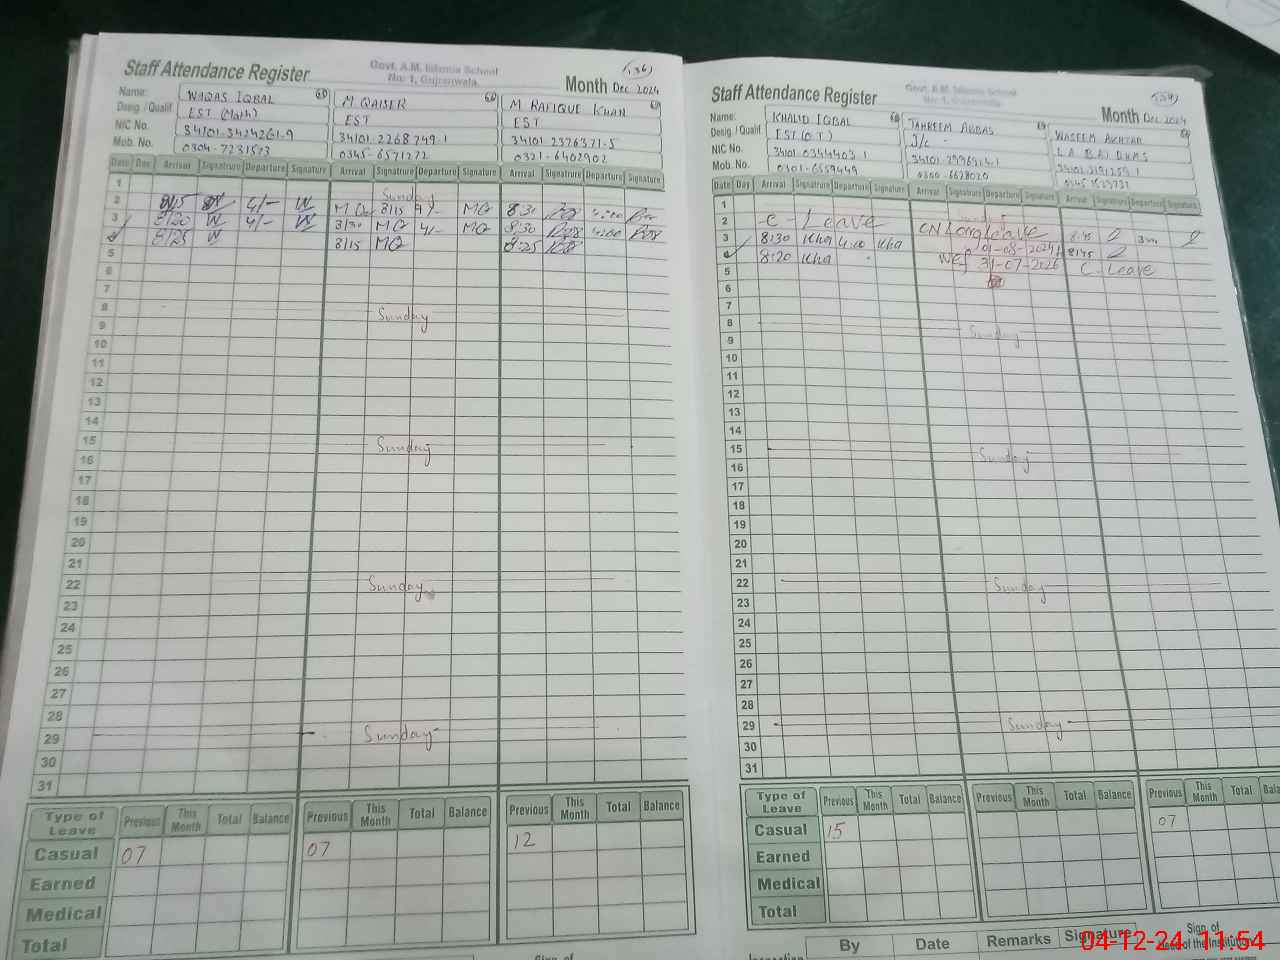 Staff Attendance Register
Govt. A.M. Islamia School
No: 1, Gujranwala
(136)
Month Dec 2024
Name: WAQAS IQBAL M QAISER M RAFIQUE KHAN
Desig. / Qualif EST (Math) EST EST
NIC No. 34101-2268749-1 34101 2376371-5
Mob. No. 0345-6571272 0321-6402902
Date Day Arrival Signature Departure Signature Arrival Signature Departure Signature Arrival Signature Departure Signature
1 Sunday
2 8/15 4/- W 8/15 4/- MQ 8:30 4:00
3 8/20 W 4/- W 8/30 MQ 4/- MQ 8:30 4:00
4 8/25 W 8/15 MQ 8:25
5
6
7
8 Sunday
9
10
11
12
13
14
15 Sunday
16
17
18
19
20
21
22 Sunday
23
24
25
26
27
28
29 Sunday
30
31
Type of Leave Previous This Month Total Balance Previous This Month Total Balance Previous This Month Total Balance
Casual 07 07 12
Earned
Medical
Total
Staff Attendance Register
Govt. A.M. Islamia School
No: 1, Gujranwala
Month Dec 2024
Name: KHALID IQBAL TAHREEM ABBAS WASEEM AKHTAR
Desig. / Qualif EST (O.T) J/c
NIC No. 34101-0344403-1
Mob. No. 0301-6559449 0300-6628020
Date Day Arrival Signature Departure Signature Arrival Signature Departure Signature Arrival Signature Departure Signature
1 Sunday
2 -C- Leave CN Long Leave 8:45
3 8:30 Kha 4:00 Kha 01-08-2024 8:45
4 8:20 Kha Wef 31-07-2026 C-Leave
5
6
7
8 Sunday
9
10
11
12
13
14
15 Sunday
16
17
18
19
20
21
22 Sunday
23
24
25
26
27
28
29 Sunday
30
31
Type of Leave Previous This Month Total Balance Previous This Month Total Balance Previous This Month Total
Casual 15 07
Earned
Medical
Total
By Date Remarks Signature
Sign. of
Head of the Institution
Sign. of
04-12-24 11:54